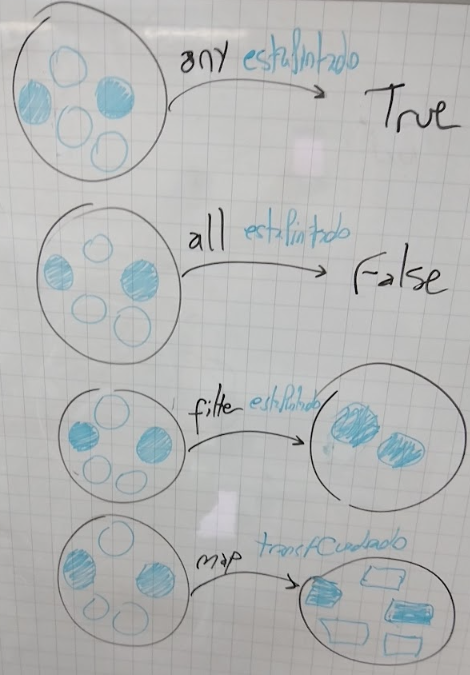 any estaPintado
True
all estaPintado
False
filter estaPintado
map transfCuadrado